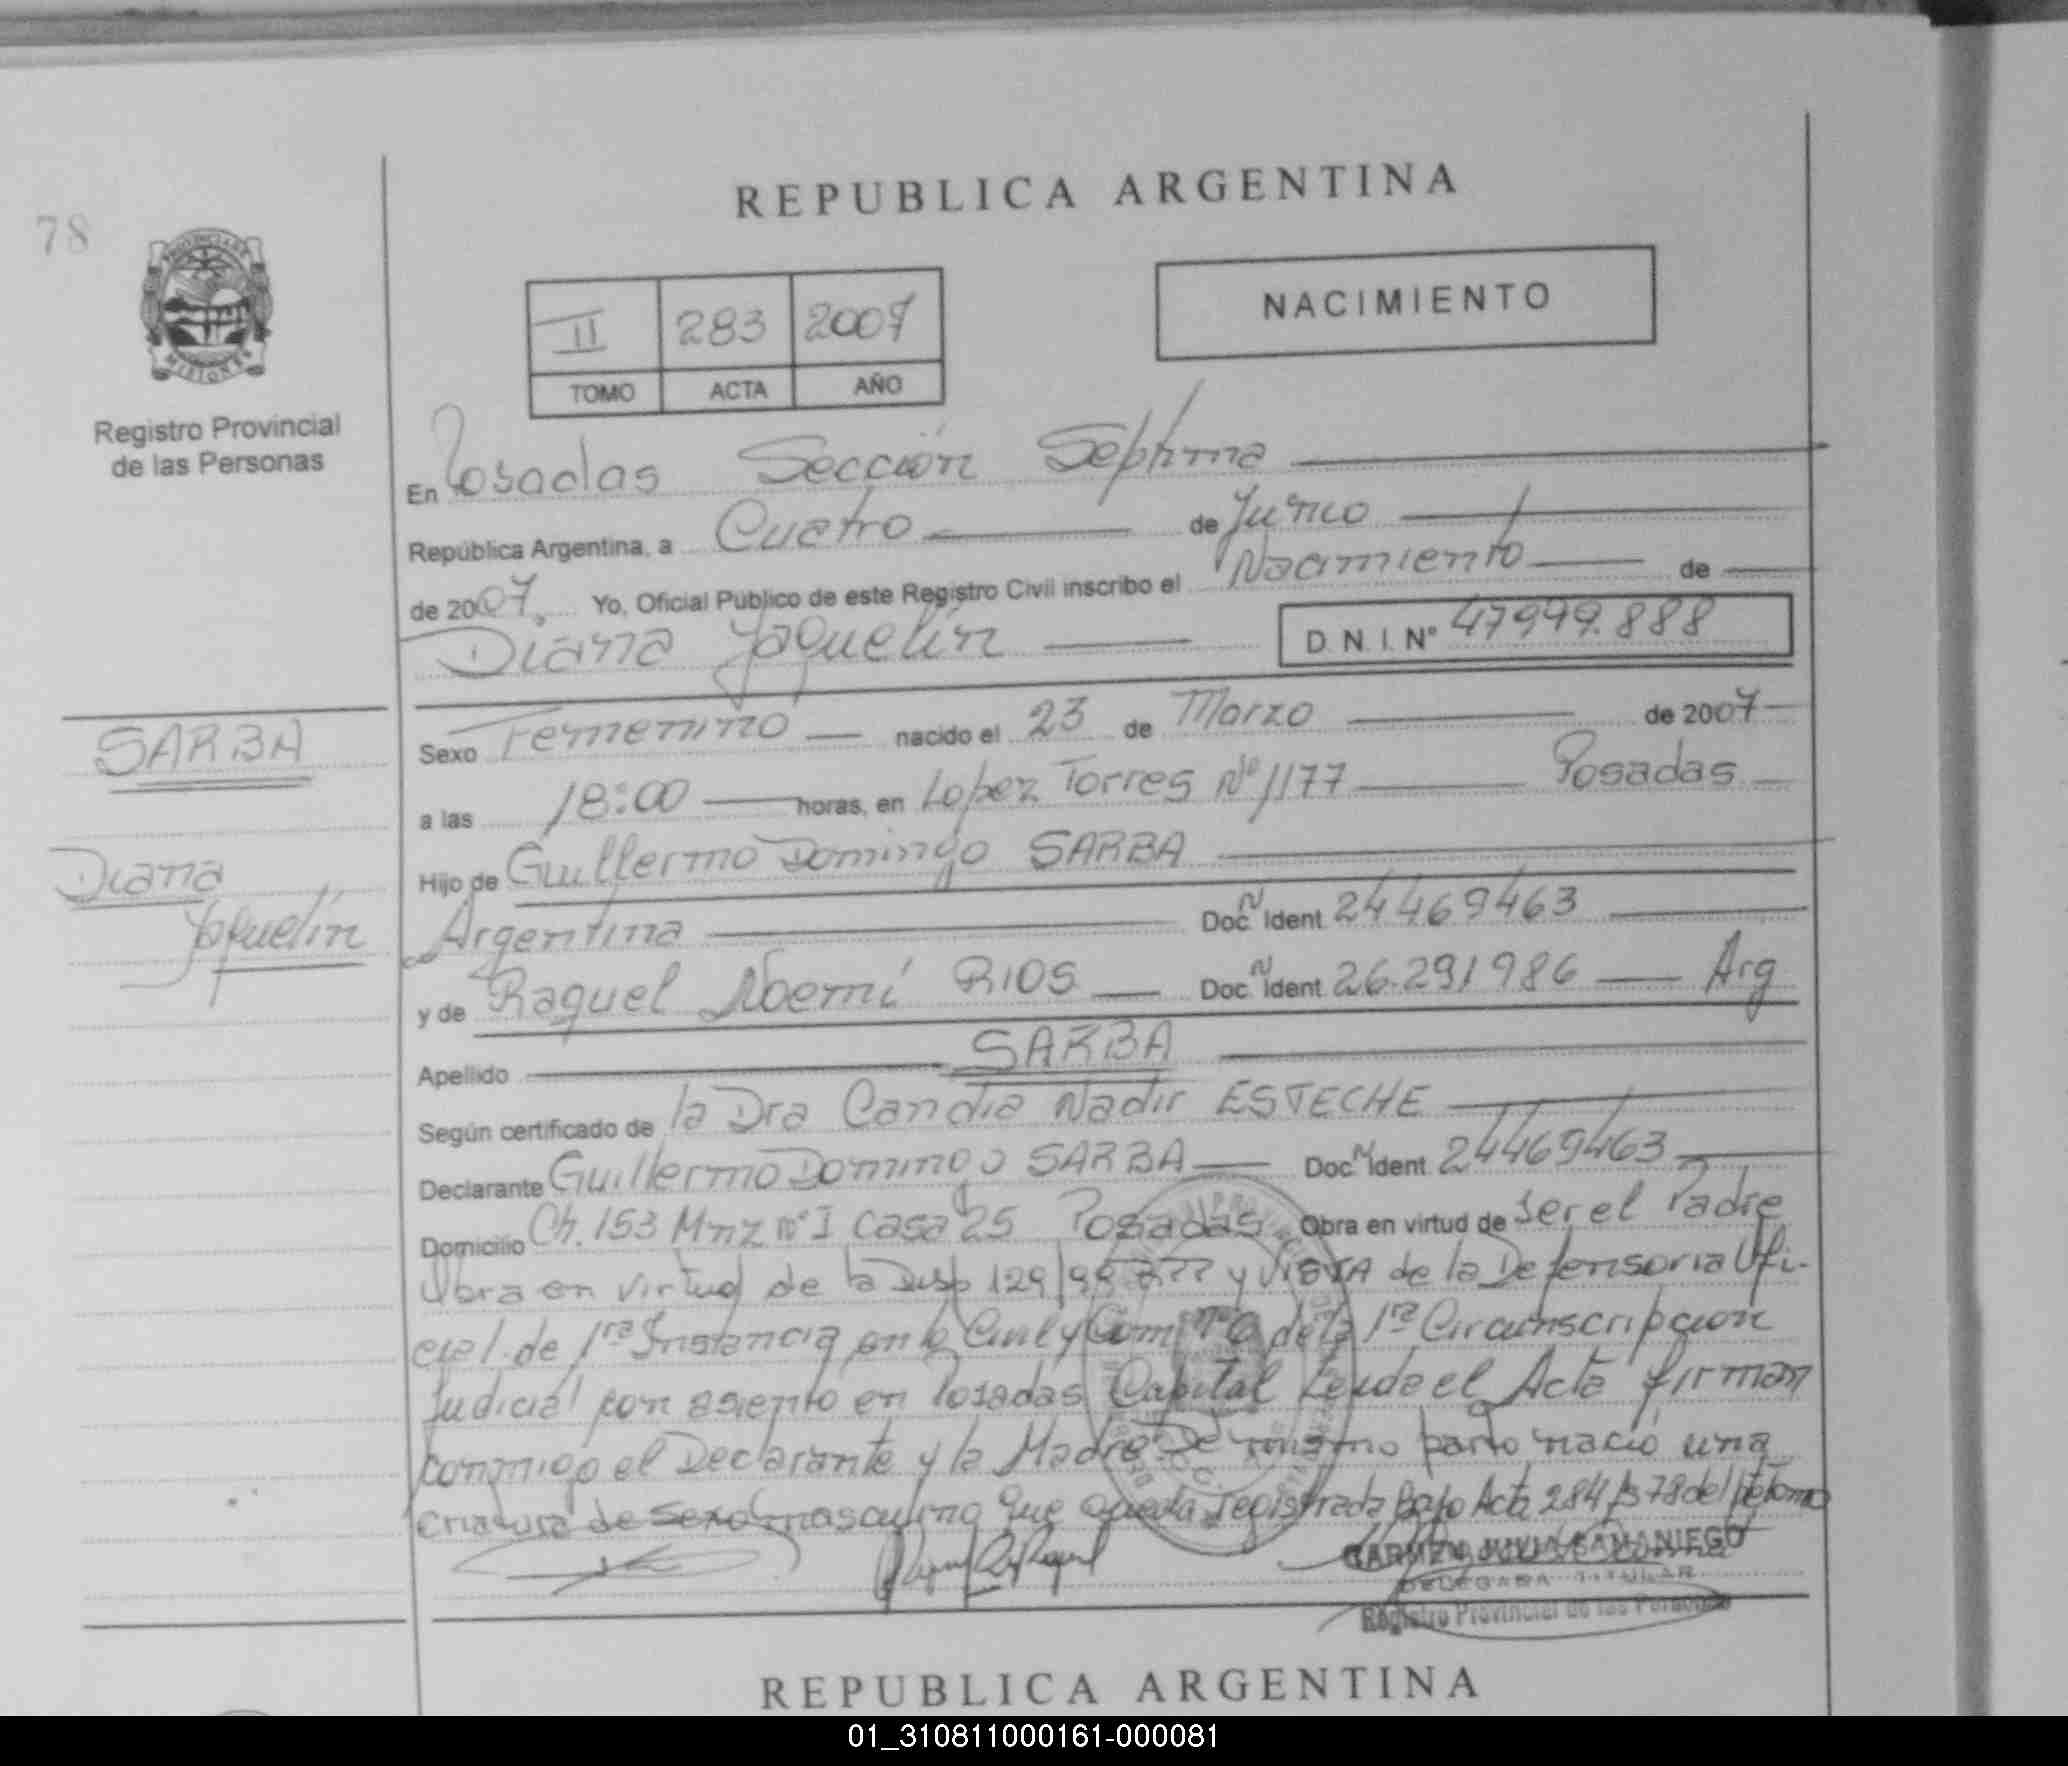 REPUBLICA ARGENTINA
78
NACIMIENTO
II 283 2007
TOMO ACTA AÑO
PROVINCIA DE
MISIONES
Registro Provincial
de las Personas
En Posadas Sección Séptima
República Argentina, a Cuatro de Junio
de 2007. Yo, Oficial Público de este Registro Civil inscribo el Nacimiento de
Diana Jaquelin D.N.I. N° 47999.888
SARBA
Diana
Jaquelin
Sexo Femenino nacido el 23 de Marzo de 2007
a las 18:00 horas, en Lopez Torres N° 1177 Posadas
Hijo de Guillermo Domingo SARBA
Argentina Doc. N Ident. 24469463
y de Raquel Noemí RIOS Doc. N Ident. 26.291986 Arg
Apellido SARBA
Según certificado de la Dra Candia Nadir ESTECHE
Declarante Guillermo Domingo SARBA Doc. N Ident. 24469463
Domicilio Ch. 153 Mnz N° I Casa 25 Posadas Obra en virtud de ser el Padre
Obra en virtud de la Disp 129/99 y VISTA de la Defensoria Ofi-
cial de 1ra Instancia en lo Civil y Com de la 1ra Circunscripcion
Judicial con asiento en Posadas Capital Leida el Acta firman
conmigo el Declarante y la Madre De mismo parto nació una
criatura de sexo masculino que queda registrada bajo Acta 284 fs 78 del pte tomo
CARMEN JULIA SAMANIEGO
DELEGADA TITULAR
Registro Provincial de las Personas
REPUBLICA ARGENTINA
01_310811000161-000081